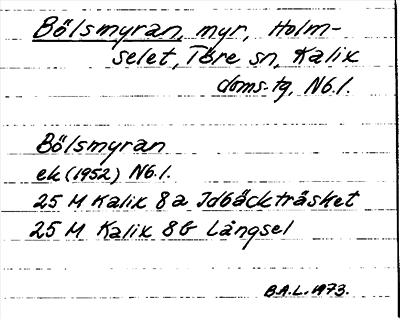 Bölsmyran, myr, Holm-
selet, Töre sn, Kalix
doms.tg, Nb.l.
Bölsmyran
ek (1952) Nb.l.
25 M Kalix 8a Idbäckträsket
25 M Kalix 8b Långsel
B.A.L. 1973.